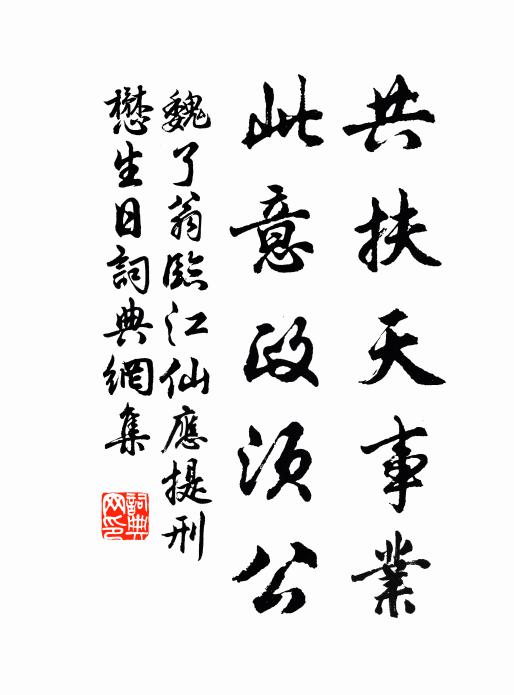 共扶天事業
此意政須公
魏了翁臨江仙應提刑
懋生日詞典網集
詞典網印